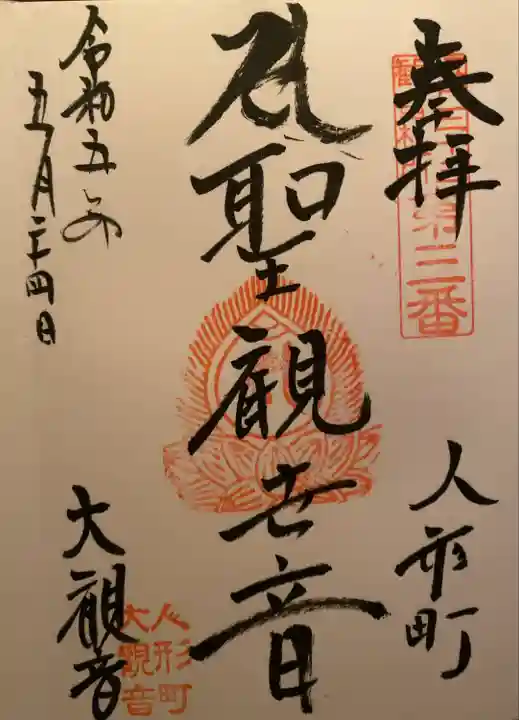 奉拝
第三番
人形町
聖観世音
令和五年
五月二十四日
大観音
人形町
大観音